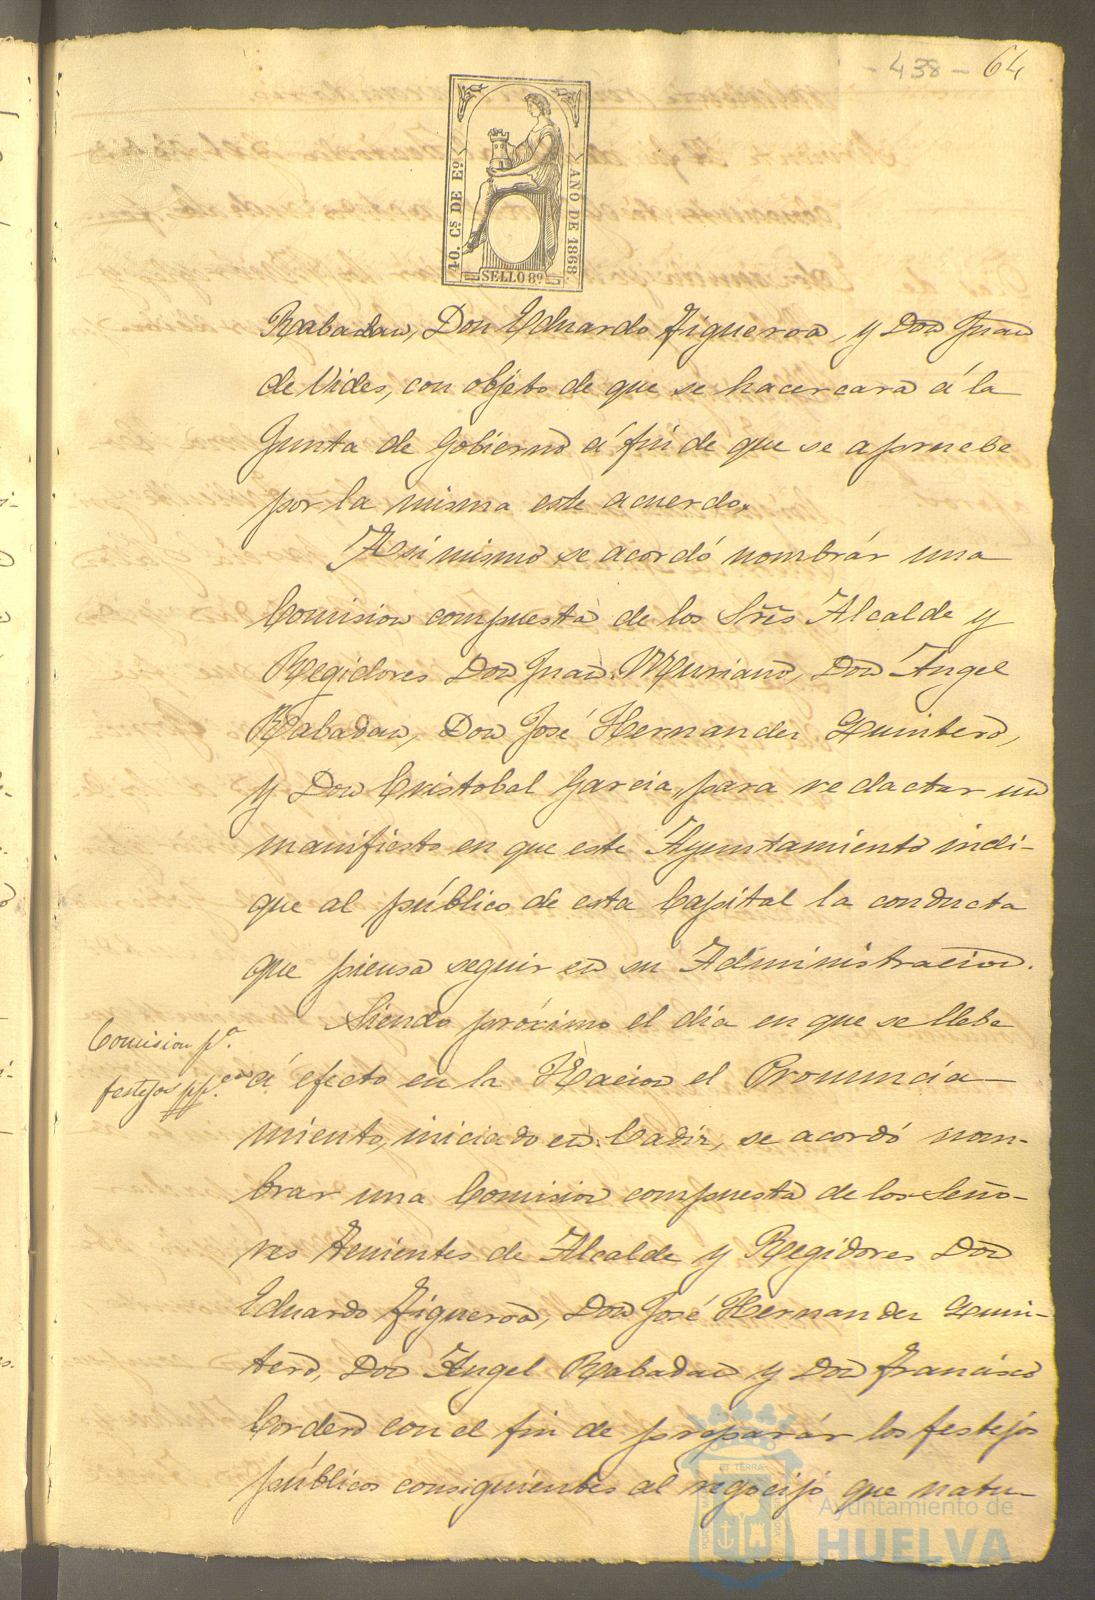 - 438 - 64
10. Cs DE Eo.
AÑO DE 1868.
SELLO 8º
Rabadan, Don Eduardo Figueroa, y Don Juan
de Vides, con objeto de que se hacercara á la
Junta de Gobierno á fin de que se apruebe
por la misma este acuerdo.
Asi mismo se acordó nombrár una
Comision compuesta de los Sres Alcalde y
Regidores Don Juan Muriano, Don Angel
Rabadan, Don José Hernandez Quintero,
y Don Cristobal Garcia, para redactar un
manifiesto en que este Ayuntamiento indi-
que al público de esta Capital la conducta
que piensa seguir en su Administracion.
Siendo próximo el día en que se llebe
Comision pa.
festejos ppcos
á efecto en la Nacion el Pronuncia-
miento, iniciado en Cadiz, se acordó nom-
brar una Comision compuesta de los Seño-
res Tenientes de Alcalde y Regidores Don
Eduardo Figueroa, Don José Hernandez Quin-
tero, Don Angel Rabadan y Don Francisco
Cordero con el fin de preparár los festejos
públicos consiguientes al regocijo que natu-
Ayuntamiento de
HUELVA